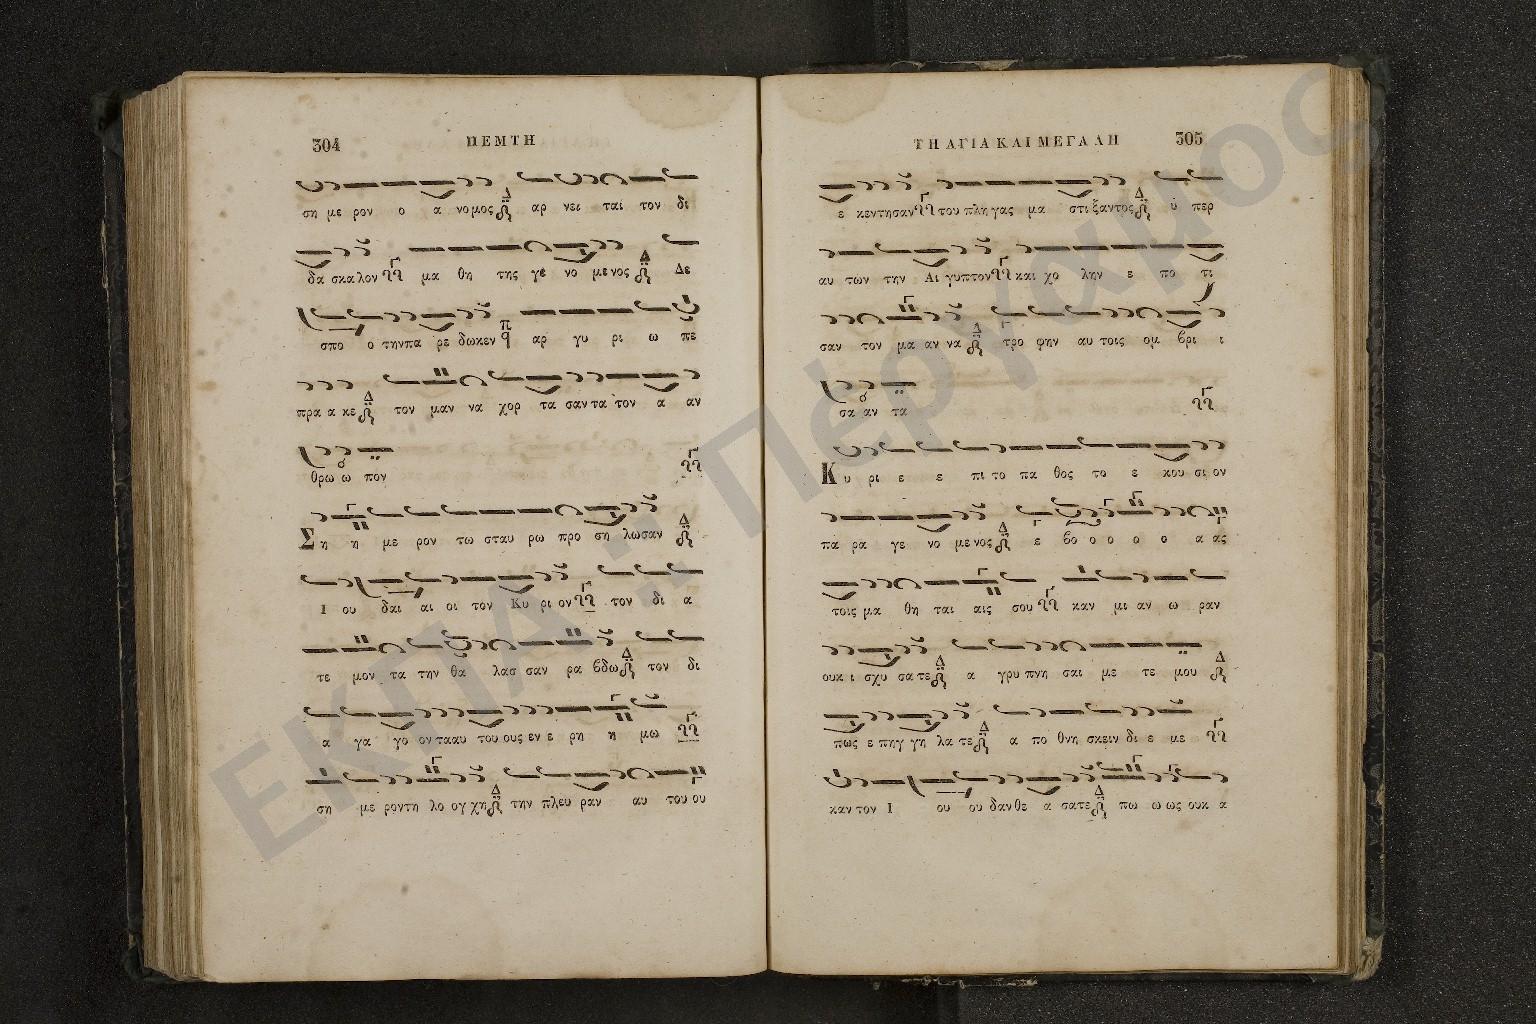 304
ΠΕΜΤΗ
ση με ρον ο α νομος αρ νει ται τον δι
δα σκα λον μα θη της γε νο με νος Δε
σπο ο την πα ρε δωκεν αρ γυ ρι ω πε
πρα α κε τον μαν να χορ τα σαν τα τον α αν
θρω ω πον
Ση η με ρον τω σταυ ρω προ ση λωσαν
Ι ου δαι αι οι τον Κυ ρι ον τον δι α
τε μον τα την θα λασ σαν ρα βδω τον δι
α γα γο ον τααυ του ους εν ε ρη η μω
ση με ροντη λο ογ χη την πλευ ραν αυ του ου
ΤΗ ΑΓΙΑ ΚΑΙ ΜΕΓΑΛΗ
305
ε κεντησαν του πληγας μα στι ξαντος υ περ
αυ των την Αι γυπτον και χο λην ε πο τι
σαν τον μα αν να τρο φην αυ τοις ομ βρι ι
σα αν τα
Κυ ρι ε ε πι το πα θος το ε κου σι ον
πα ρα γε νο με νος ε βο ο ο ο ο α ας
τοις μα θη ται αις σου καν μι αν ω ραν
ουκ ι σχυ σα τε α γρυ πνη σαι με τε μου
πως ε πηγ γη λα τε α πο θνη σκειν δι ε με
καν τον Ι ου ου δαν θε α σα τε πω ω ως ουκ α
ΕΚΠΑ :: Πέργαμος